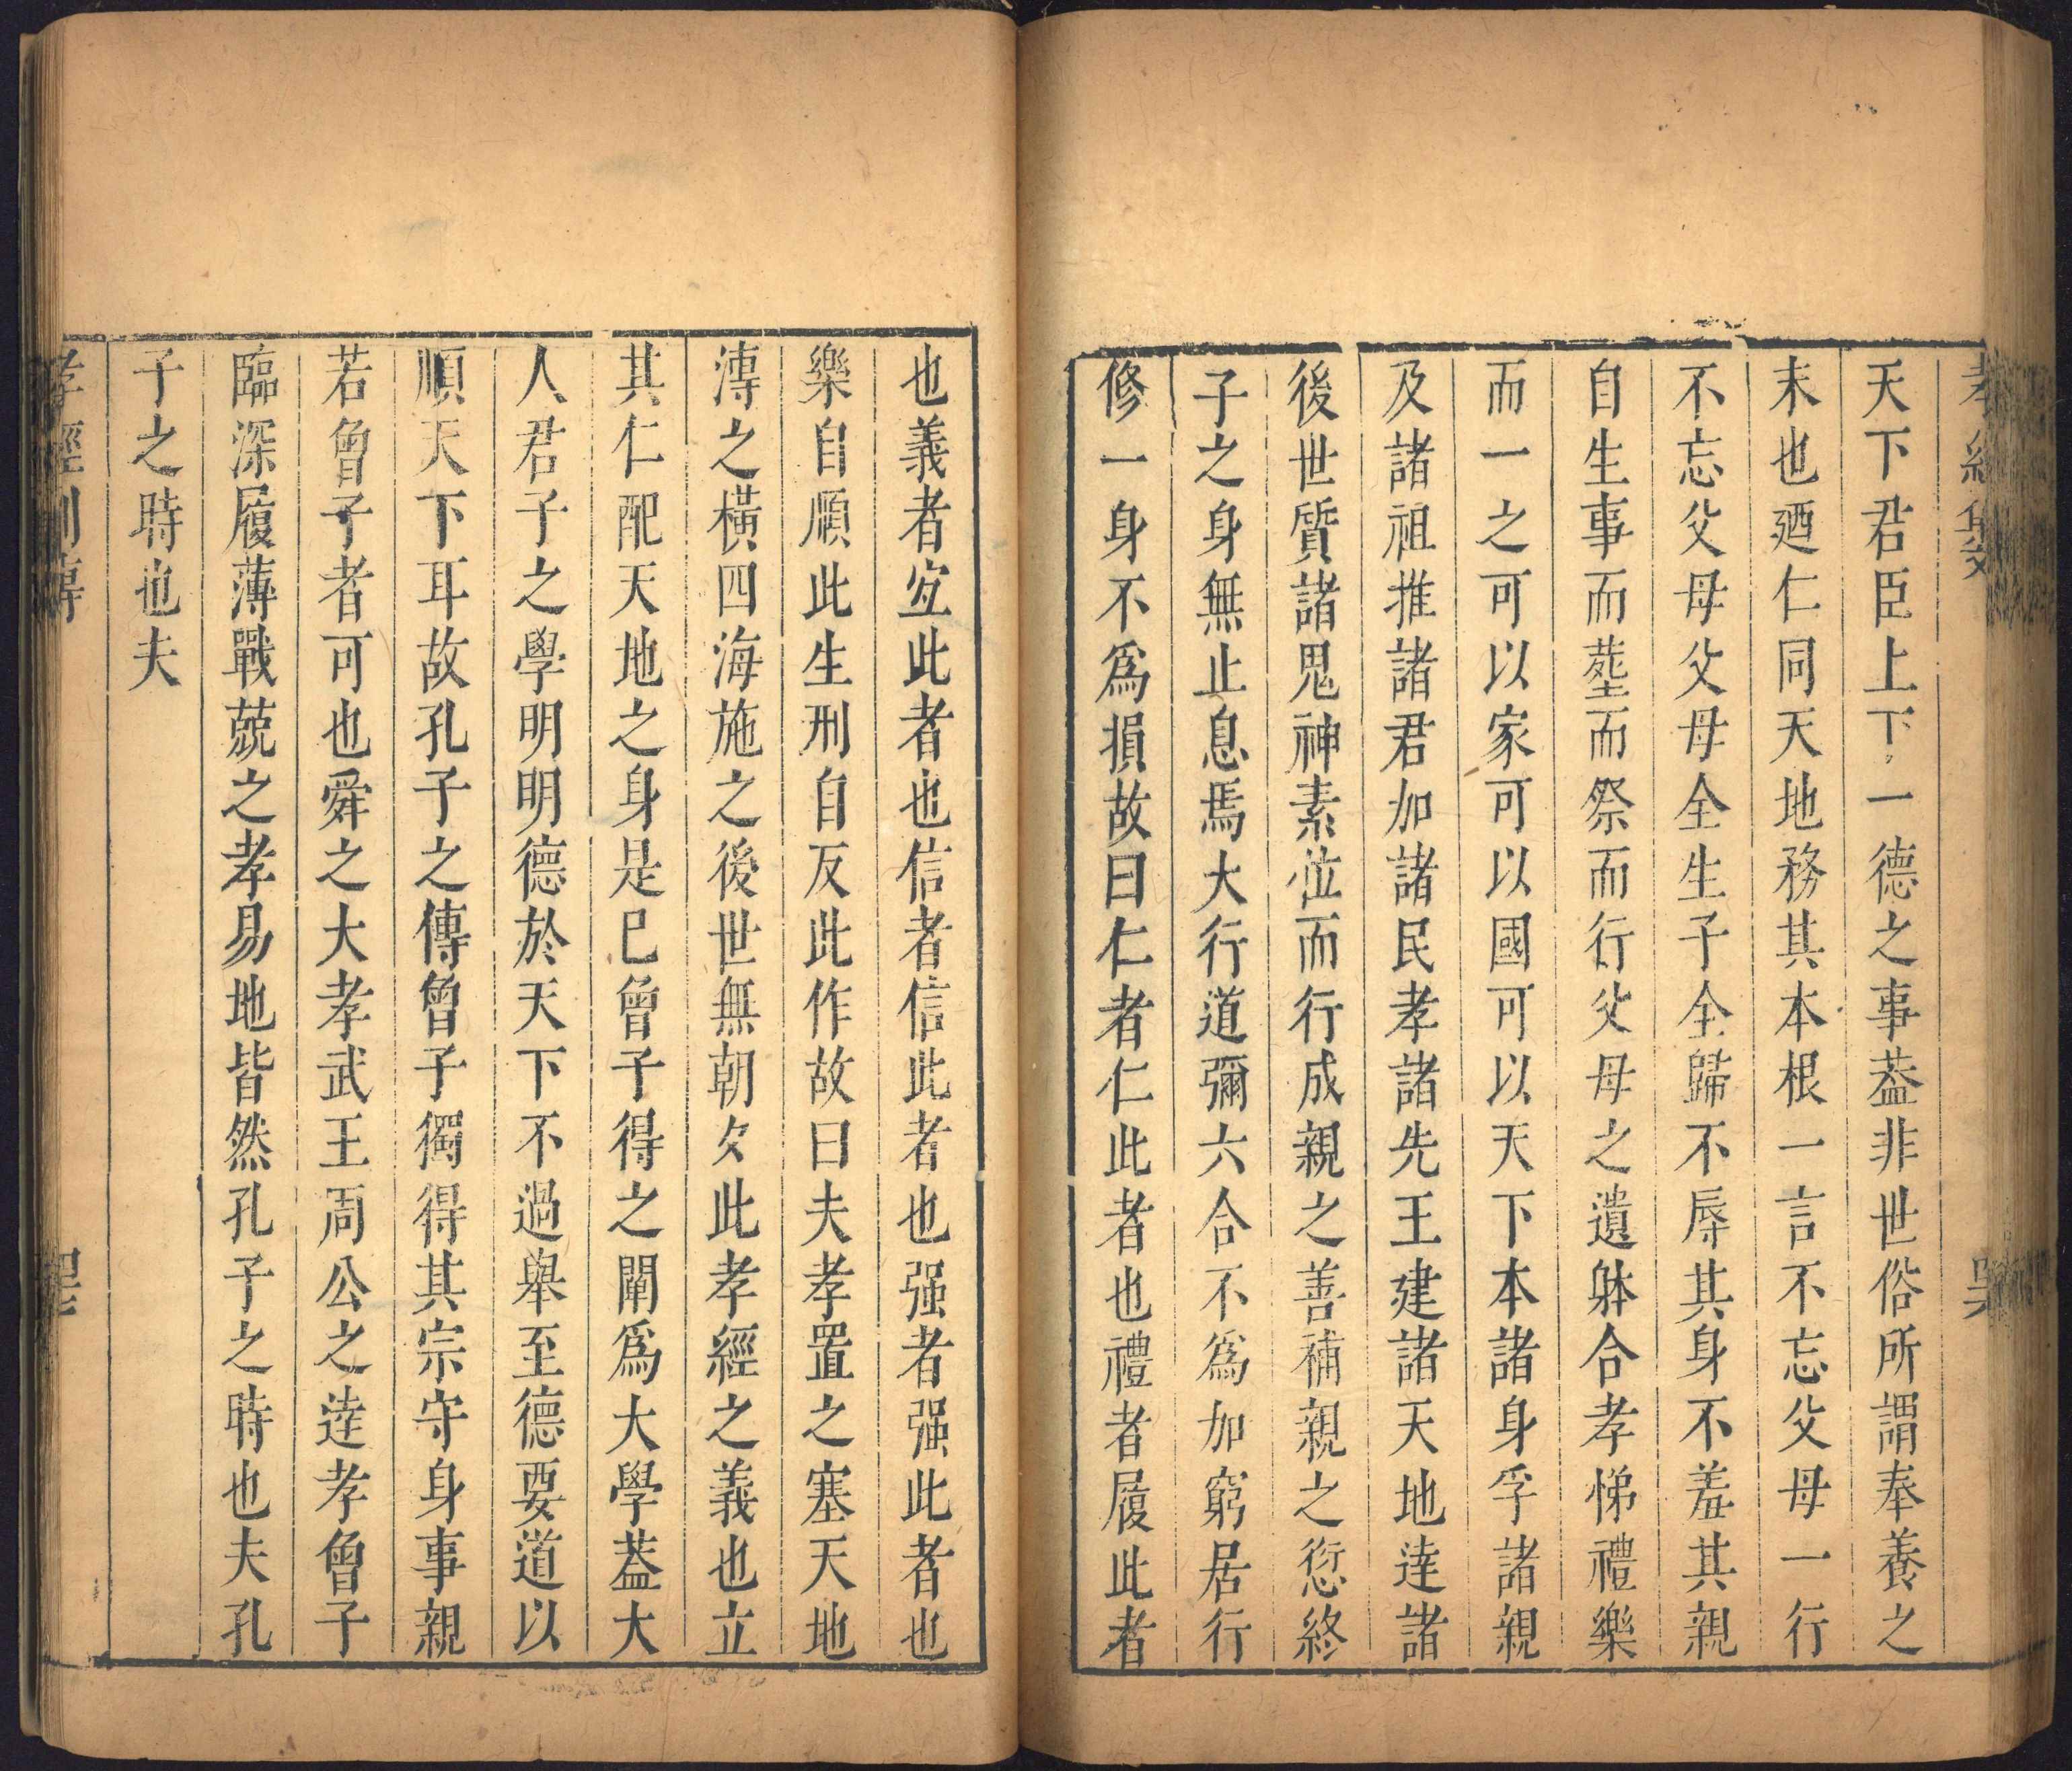 天下君臣上下一德之事葢非世俗所謂奉養之
末也廼仁同天地務其本根一言不忘父母一行
不忘父母父母全生子全歸不辱其身不羞其親
自生事而塟而祭而行父母之遺躰合孝悌禮樂
而一之可以家可以國可以天下本諸身孚諸親
及諸祖推諸君加諸民孝諸先王建諸天地逹諸
後世質諸鬼神素位而行成親之善補親之愆終
子之身無止息焉大行道彌六合不爲加窮居行
修一身不爲損故曰仁者仁此者也禮者履此者
也義者宐此者也信者信此者也强者强此者也
樂自順此生刑自反此作故曰夫孝置之塞天地
溥之橫四海施之後世無朝夕此孝經之義也立
其仁配天地之身是已曾子得之闡爲大學葢大
人君子之學明明德於天下不過舉至德要道以
順天下耳故孔子之傳曾子獨得其宗守身事親
若曾子者可也舜之大孝武王周公之逹孝曾子
臨深履薄戰兢之孝易地皆然孔子之時也夫孔
子之時也夫